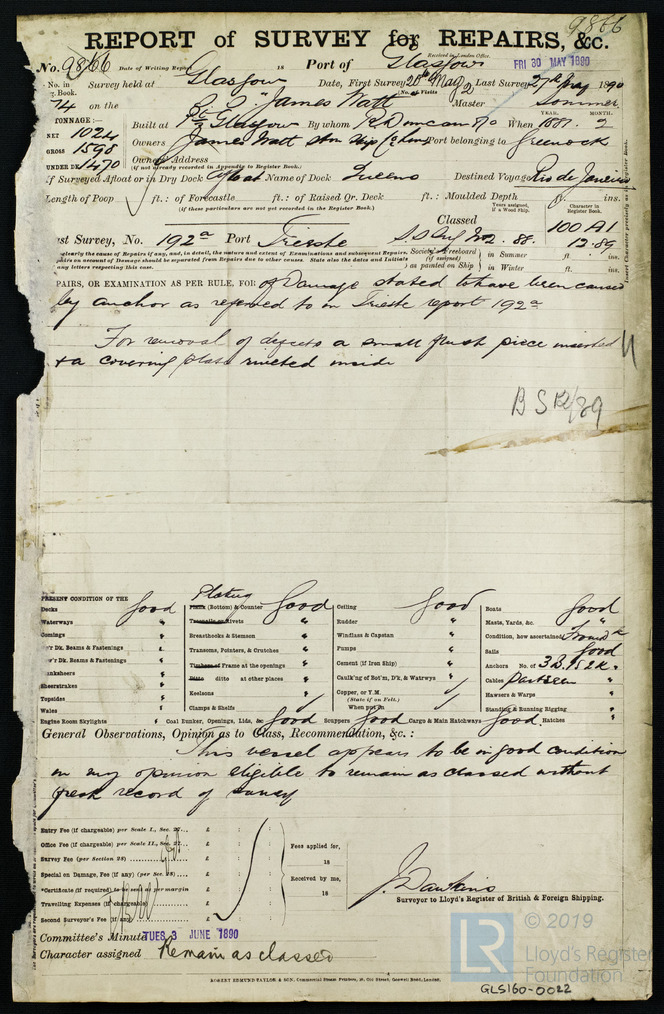 9866
REPORT of SURVEY for REPAIRS, &c.
Received in London Office.
No. 9866 Date of Writing Report 18 Port of Glasgow FRI 30 MAY 1890
No. in
Book. Survey held at Glasgow Date, First Survey 20th May Last Survey 27th May 1890
(No. of Visits 2)
74 on the "James Watt" Master Sommer
TONNAGE:— YEAR. MONTH.
NET 1024 Built at Pt Glasgow By whom R Duncan & Co When 1881. 2
GROSS 1590 Owners James Watt Port belonging to Greenock
UNDER DK 1470 Owners' Address
(if not already recorded in Appendix to Register Book.)
If Surveyed Afloat or in Dry Dock Afloat Name of Dock Queens Destined Voyage Rio de Janeiro
Length of Poop ft.: of Forecastle ft.: of Raised Qr. Deck ft.: Moulded Depth ft. ins.
(if these particulars are not yet recorded in the Register Book.)
Years assigned, if a Wood Ship. Character in Register Book.
Classed 100 A1
ast Survey, No. 192a Port Trieste 2. 88. 12.89
clearly the cause of Repairs if any, and, in detail, the nature and extent of Examinations and subsequent Repairs.
on account of Damage should be separated from Repairs due to other causes. State also the dates and Initials
any letters respecting this case.
Society's Freeboard (if assigned) as painted on Ship in Summer ft. ins.
in Winter ft. ins.
Insert Character precisely as in Register Book.
PAIRS, OR EXAMINATION AS PER RULE, FOR of Damage stated to have been caused
by anchor as referred to in Trieste report 192a
For removal of defects a small flush piece inserted
& a covering plate riveted inside
B S 12/89
PRESENT CONDITION OF THE
Decks Good
Waterways "
Comings "
Dk. Beams & Fastenings "
Dk. Beams & Fastenings "
Sheerstrakes "
Topsides "
Wales "
Engine Room Skylights "
Plating
Plank (Bottom) & Counter Good
Treenails or Rivets "
Breasthooks & Stemson "
Transoms, Pointers, & Crutches "
Timbers or Frame at the openings "
Ditto ditto at other places "
Keelsons "
Clamps & Shelfs
Coal Bunker, Openings, Lids, &c. Good
Ceiling Good
Rudder "
Windlass & Capstan "
Pumps "
Cement (if Iron Ship) "
Caulk'g of Bot'm, D'k, & Watrwys "
Copper, or Y.M.
(State if on Felt.)
When put on
Scuppers Good Cargo & Main Hatchways Good
Boats Good
Masts, Yards, &c. "
Condition, how ascertained From dk
Sails Good
Anchors No. of 3B. 1S. 2K.
Cables Part seen
Hawsers & Warps "
Standing & Running Rigging "
Hatches "
General Observations, Opinion as to Class, Recommendation, &c.:
This vessel appears to be in good condition
in my opinion eligible to remain as classed without
fresh record of survey
Entry Fee (if chargeable) per Scale I., Sec. 27... £ : :
Office Fee (if chargeable) per Scale II., Sec. 27... £ : :
Survey Fee (per Section 28) £ : :
Special on Damage, Fee (if any) (per Sec. 28) £ : :
*Certificate (if required) to be sent as per margin £ : :
Travelling Expenses (if chargeable) £ : :
Second Surveyor's Fee (if any) £ : :
Fees applied for,
18
Received by me,
18
J. Dawkins
Surveyor to Lloyd's Register of British & Foreign Shipping.
Committee's Minute TUES 3 JUNE 1890
Character assigned Remain as classed
ROBERT EDMUND TAYLOR & SON, Commercial Steam Printers, 19, Old Street, Goswell Road, London.
LR © 2019
Lloyd's Register
Foundation
GLS160-0022